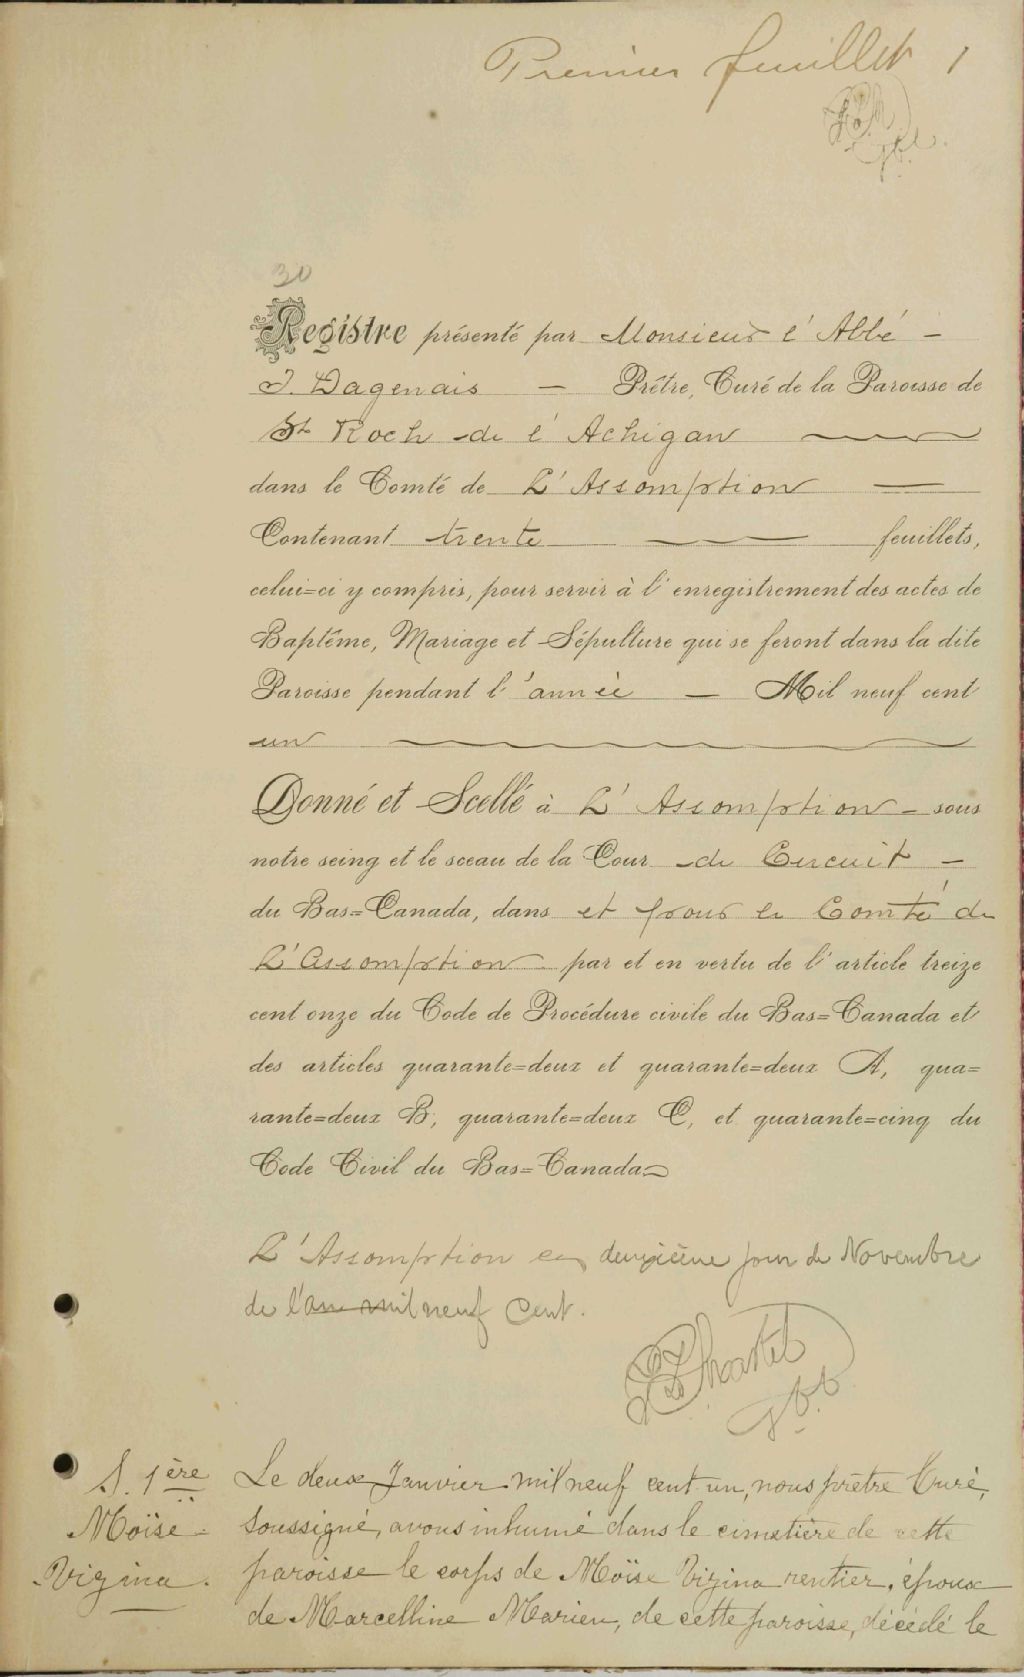 Premier feuillet 1
30
Registre présenté par Monsieur l'Abbé -
J. Dagenais - Prêtre, Curé de la Paroisse de
St Roch de l'Achigan
dans le Comté de L'Assomption
Contenant trente feuillets,
celui=ci y compris, pour servir à l'enregistrement des actes de
Baptême, Mariage et Sépulture qui se feront dans la dite
Paroisse pendant l'année - Mil neuf cent
un
Donné et Scellé à L'Assomption - sous
notre seing et le sceau de la Cour de Circuit -
du Bas=Canada, dans et pour le Comté de
L'Assomption par et en vertu de l'article treize
cent onze du Code de Procédure civile du Bas=Canada et
des articles quarante=deux et quarante=deux A, qua=
rante=deux B, quarante=deux C, et quarante=cinq du
Code Civil du Bas=Canada
L'Assomption ce deuxième jour de Novembre
de l'an mil neuf Cent.
S. 1ère
Moïse
Vézina.
Le deux Janvier mil neuf cent un, nous prêtre Curé,
soussigné, avons inhumé dans le cimetière de cette
paroisse le corps de Moïse Vézina rentier, époux
de Marcelline Marien, de cette paroisse, décédé le